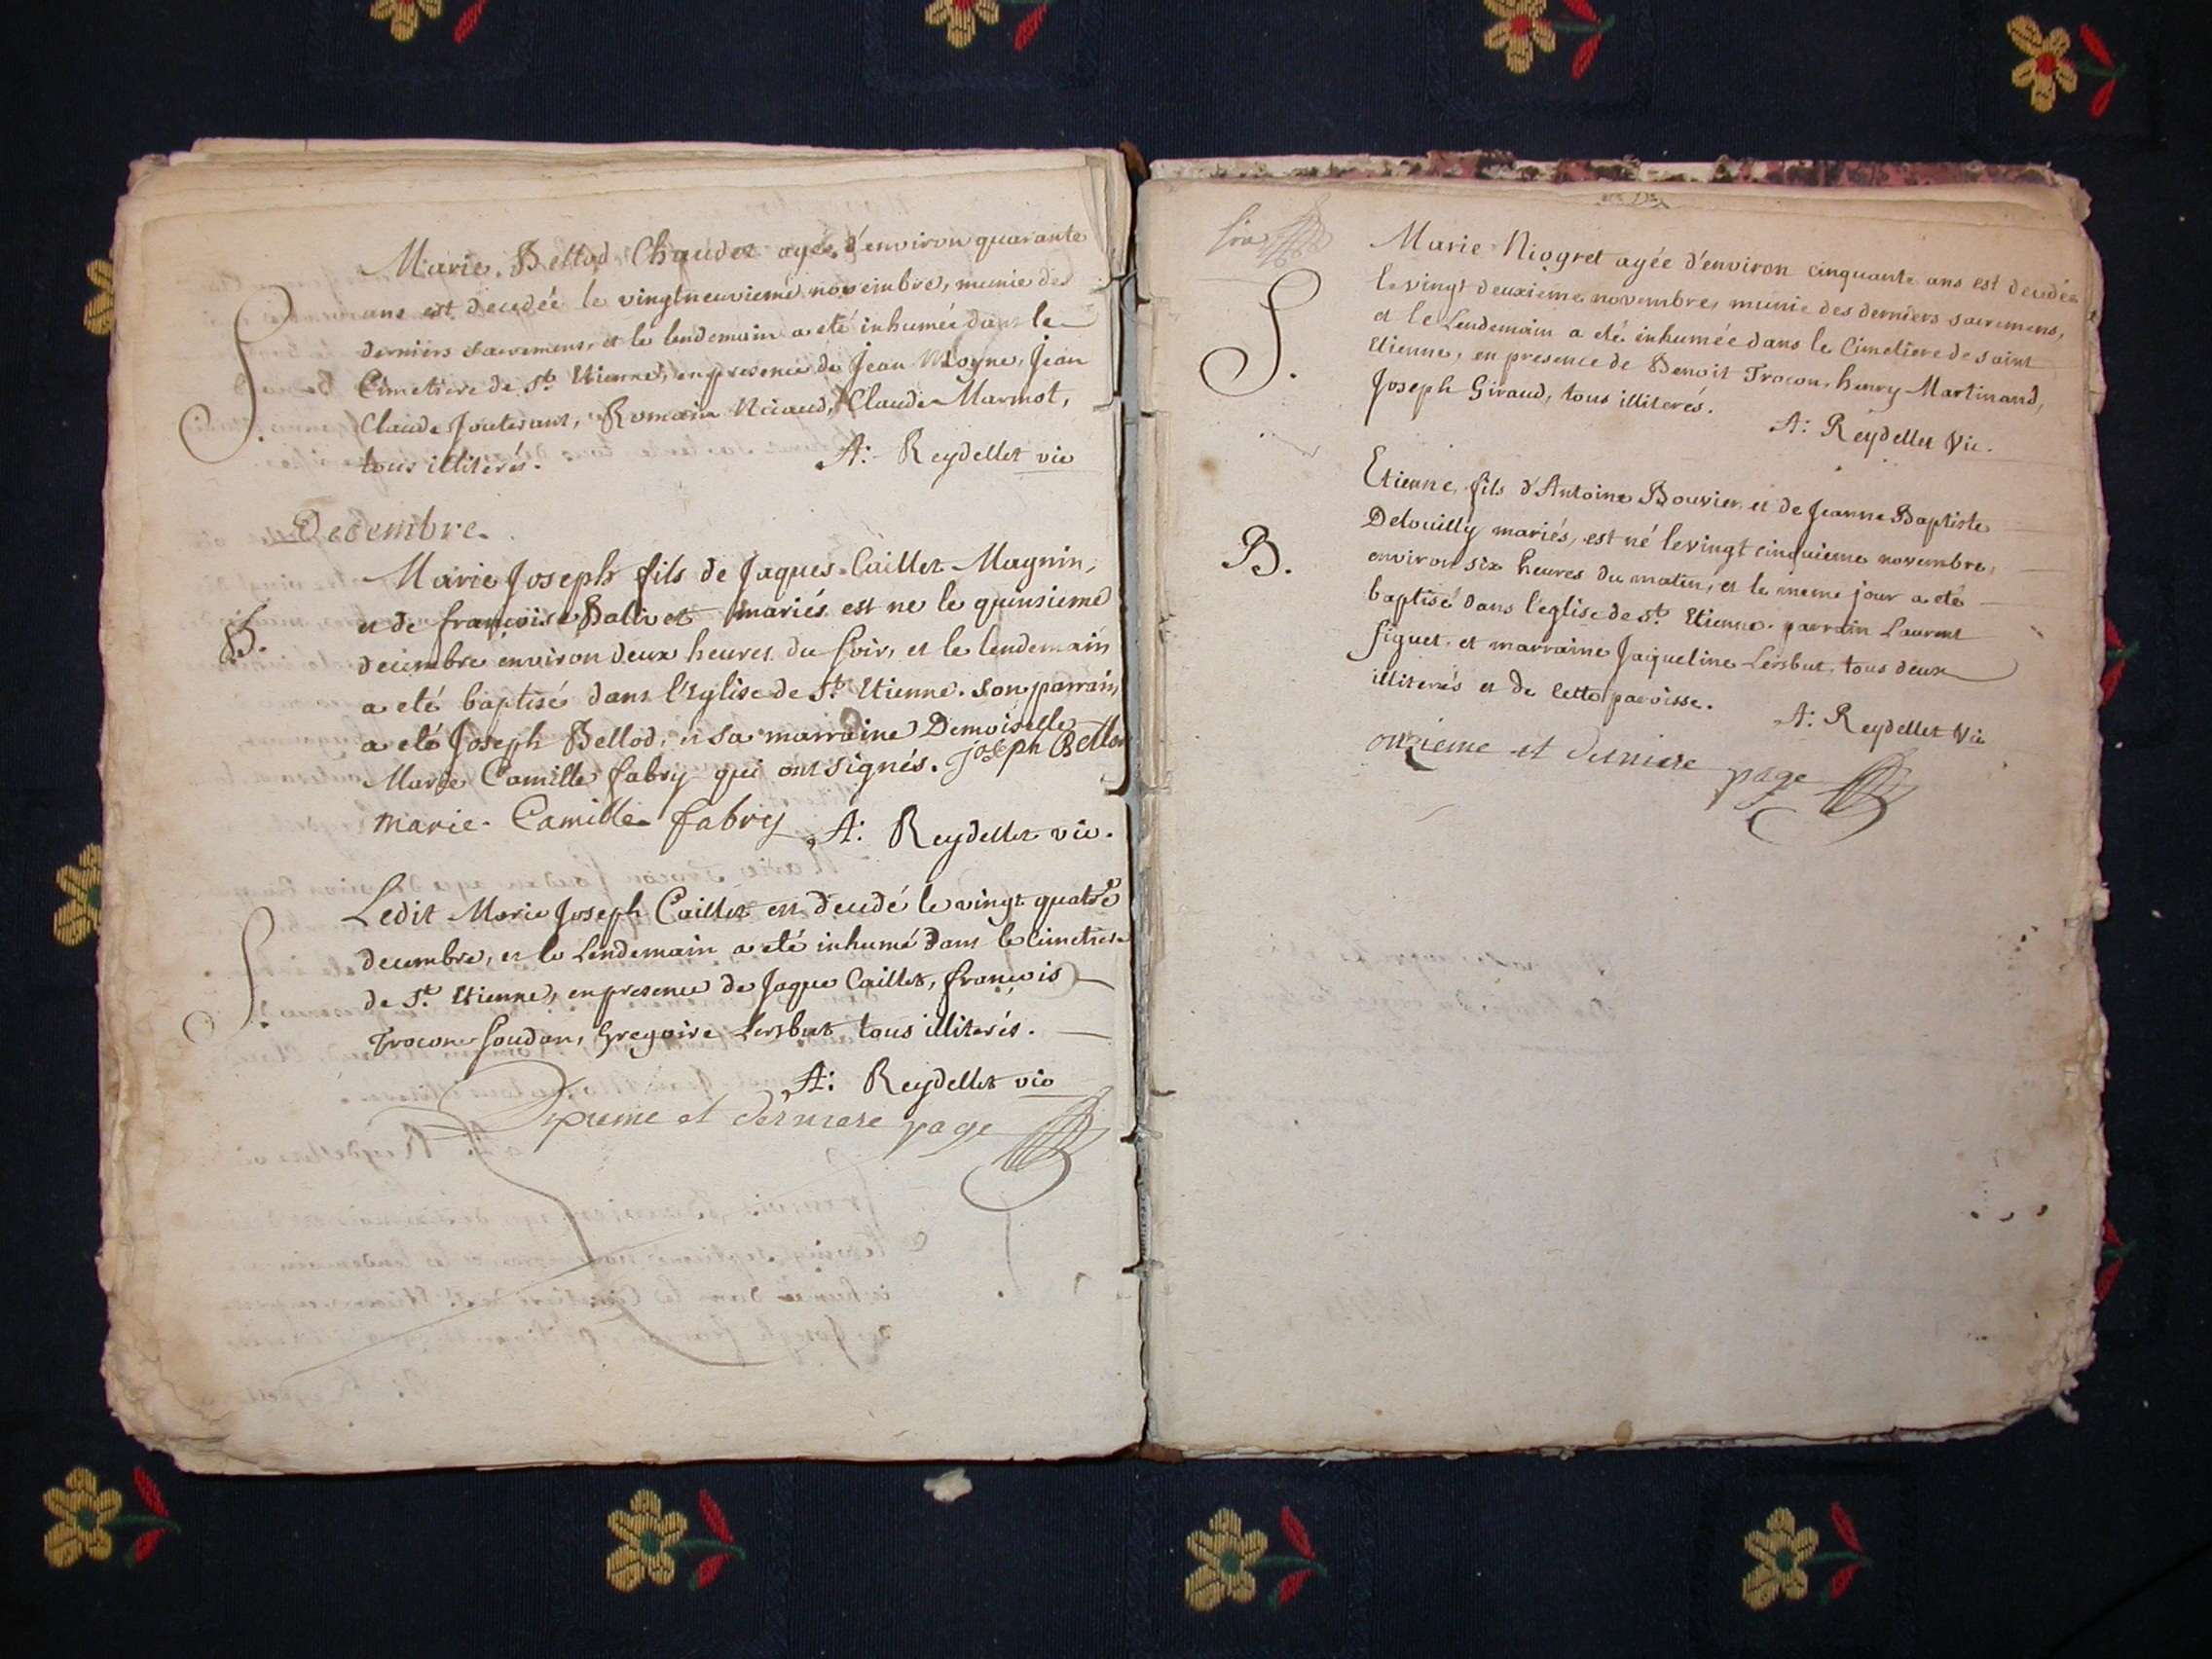 Marie Bellod Chaudet agée d'environ quarante
ans est decedée le vingtneuvieme novembre, munie des
S. derniers sacremens, et le lendemain a eté inhumée dans le
Cimetiere de St. Etienne, en presence de Jean Moyne, Jean
Claude Jouterant, Romain Niciaud, Claude Marmot,
tous illiterés. A: Reydellet vic
Decembre.
Marie Joseph fils de Jaques Caillet Magnin,
et de françoise Ballivet mariés est ne le quinsieme
B. decembre environ deux heures du soir, et le lendemain
a eté baptisé dans l'Eglise de St. Etienne. son parrain
a eté Joseph Bellod, et sa marraine Demoiselle
Marie Camille fabry qui ont signés. Joseph Bellod
marie Camille fabry A: Reydellet vic.
Ledit Marie Joseph Caillet est decedé le vingt quatre
S. decembre, et le Lendemain a eté inhumé dans le Cimetiere
de St. Etienne, en presence de Jaque Caillet, françois
Trocon Soudan, Gregoire Lersbut tous illiterés.
A: Reydellet vic
et derniere page
Marie Niogret agée d'environ cinquante ans est decedée
le vingt deuxieme novembre, munie des derniers sacremens,
S. et le Lendemain a eté inhumée dans le Cimetiere de saint
Etienne, en presence de Benoit Trocon, henry Martinand,
Joseph Giraud, tous illiterés.
A: Reydellet Vic.
Etienne, fils d'Antoine Bouvier et de Jeanne Baptiste
Delouilly mariés, est né le vingt cinquieme novembre,
B. environ six heures du matin, et le meme jour a eté
baptisé dans l'eglise de St. Etienne. parrain Laurent
figuet, et marraine Jaqueline Lersbut, tous deux
illiterés et de cette paroisse.
A: Reydellet Vic
onzieme et derniere page